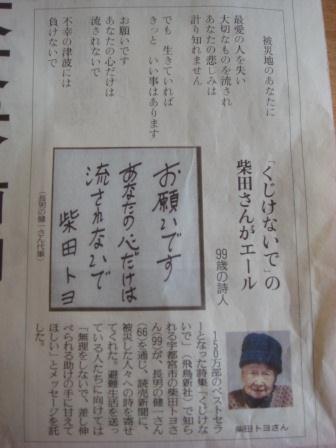 被災地のあなたに
最愛の人を失い
大切なものを流され
あなたの悲しみは
計り知れません
でも 生きていれば
きっと いい事はあります
お願いです
あなたの心だけは
流されないで
不幸の津波には
負けないで
「くじけないで」の
柴田さんがエール
99歳の詩人
お願いです
あなたの心だけは
流されないで
柴田トヨ
(長男の健一さん代筆)
150万部のベストセラ
ーとなった詩集「くじけな
いで」(飛鳥新社)で知ら
れる宇都宮市の柴田トヨさ
ん(99)が、長男の健一さん
(66)を通じ、読売新聞に、
被災した人々への詩を寄せ
てくれた。避難生活を送っ
ている人たちに向けては
「無理をしないで、差し伸
べられる助けの手に甘えて
ほしい」とメッセージを託
した。
柴田トヨさん